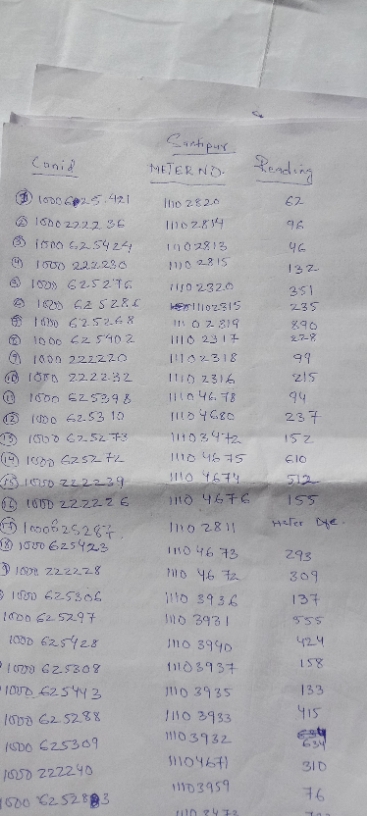 Santipur
Conid METER NO. Reading
① 1000625421 11102820 62
② 1000222236 11102814 96
③ 1000625424 11102813 46
④ 1000222230 11102815 132
⑤ 1000625296 11102320 351
⑥ 1000625286 11102315 235
1000625268 11102819 890
⑧ 1000625402 11102317 228
⑨ 1000222220 11102318 99
⑩ 1000222232 11102316 215
⑪ 1000625398 11104678 94
⑫ 1000625310 11104680 237
⑬ 1000625273 11103472 152
⑭ 1000625272 11104675 610
⑮ 1000222239 11104674 512
⑯ 1000222226 11104676 155
⑰ 1000625287 11102811 meter
⑱ 1000625423 11104673 293
1000222228 11104672 309
1000625306 11103936 137
1000625297 11103931 555
1000625428 11103940 424
1000625308 11103937 158
1000625443 11103935 133
1000625288 11103933 415
1000625309 11103932 634
1000222240 11104671 310
1000625283 11103959 76